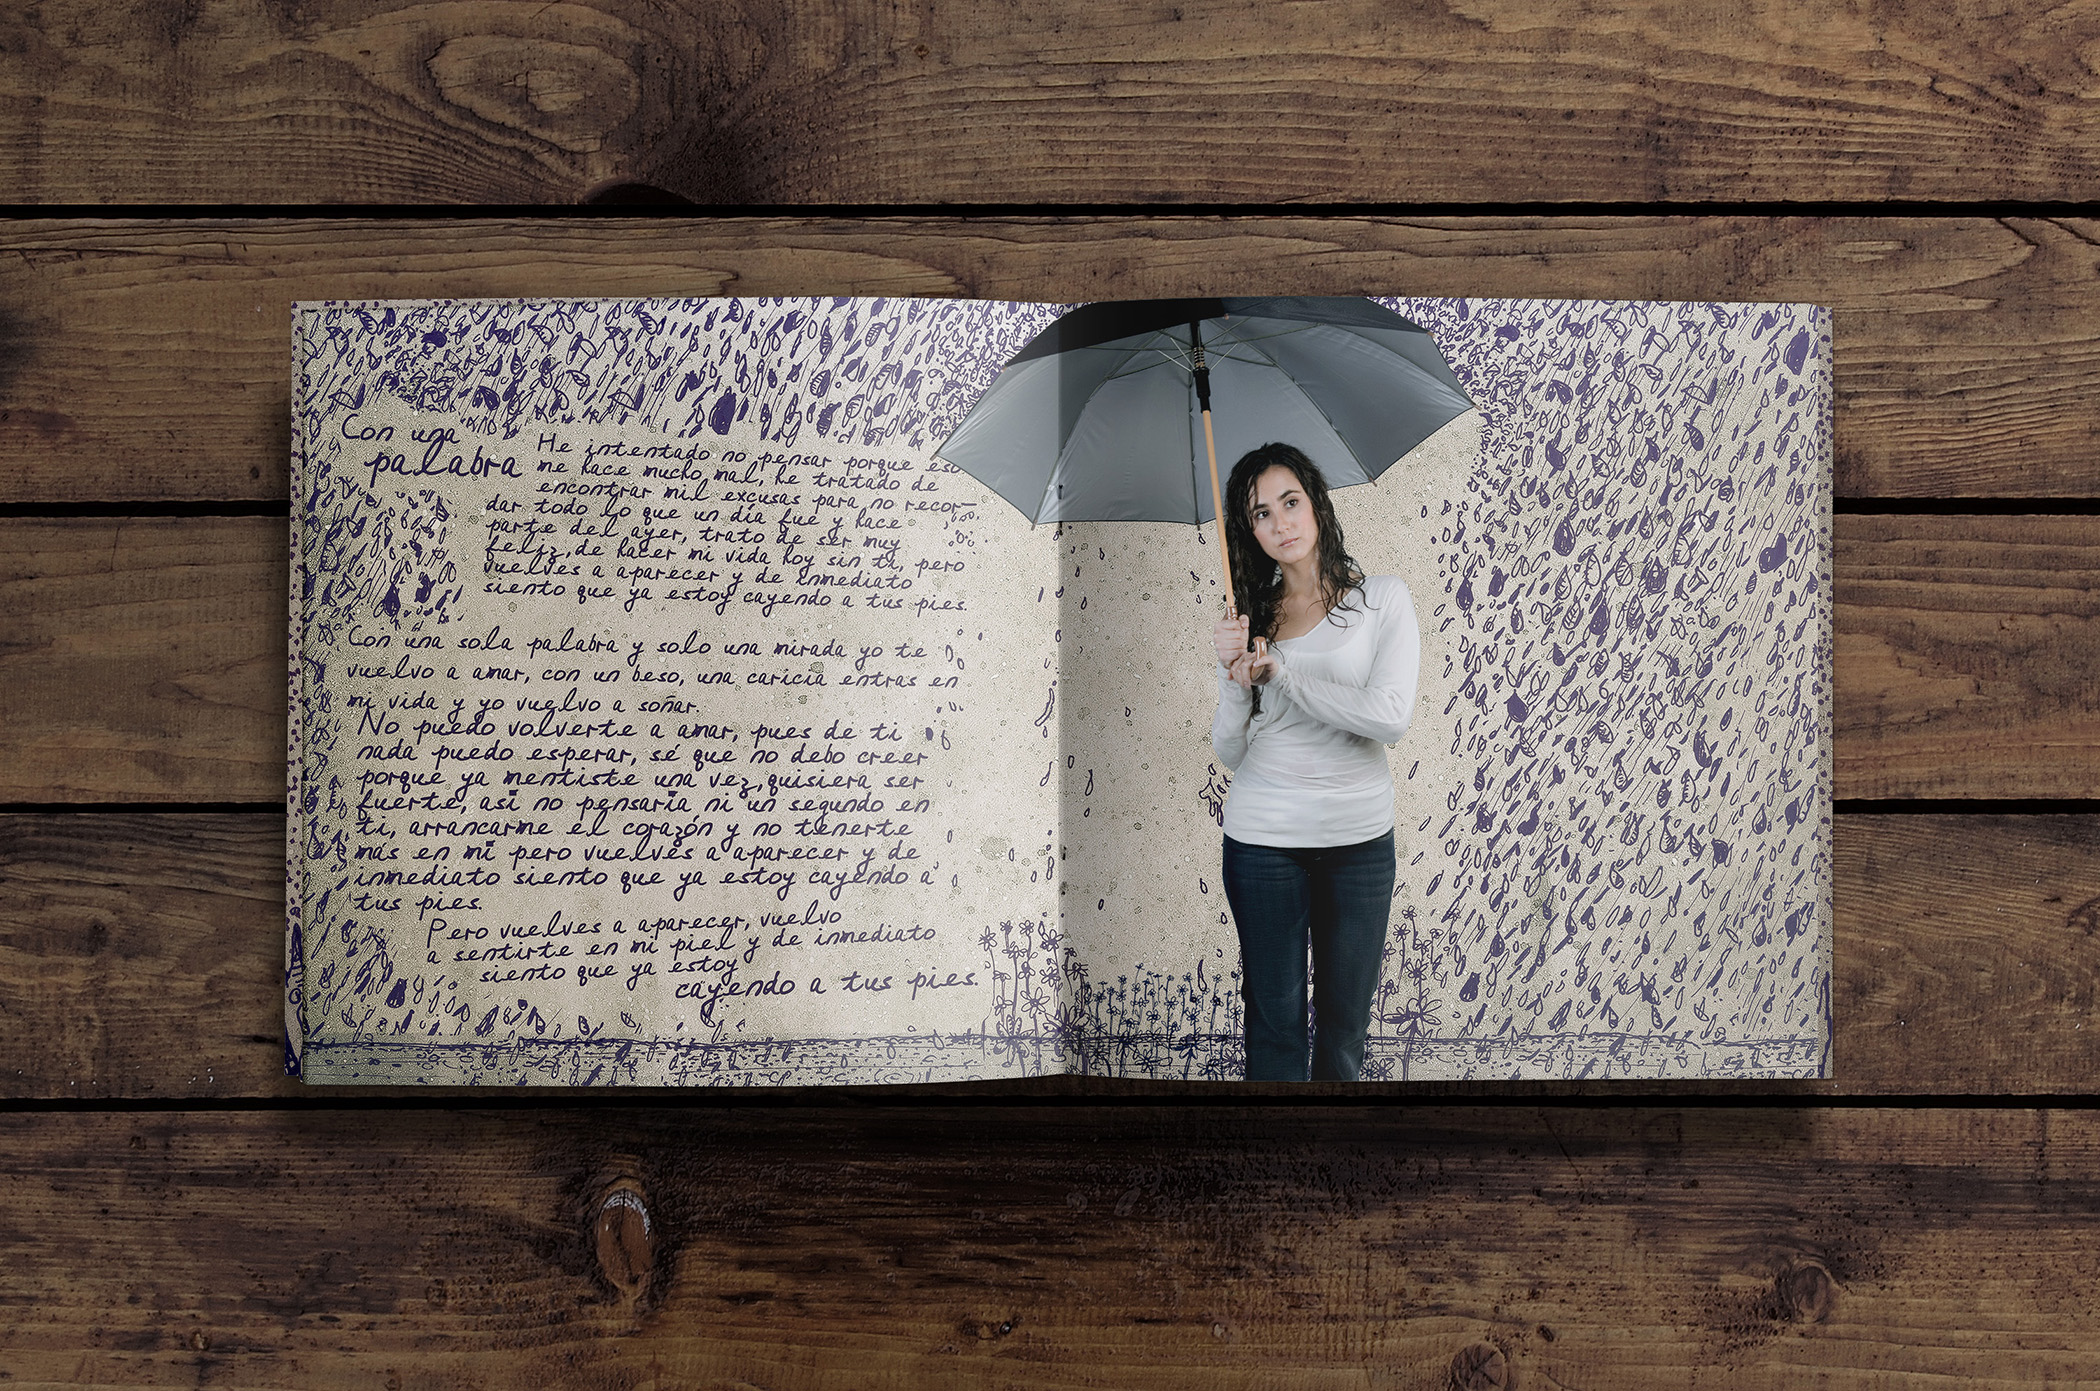 Con una
palabra
He intentado no pensar porque eso
me hace mucho mal, he tratado de
encontrar mil excusas para no recor-
dar todo lo que un día fue y hace
parte del ayer, trato de ser muy
feliz, de hacer mi vida hoy sin ti, pero
vuelves a aparecer y de inmediato
siento que ya estoy cayendo a tus pies.
Con una sola palabra y solo una mirada yo te
vuelvo a amar, con un beso, una caricia entras en
mi vida y yo vuelvo a soñar.
No puedo volverte a amar, pues de ti
nada puedo esperar, sé que no debo creer
porque ya mentiste una vez, quisiera ser
fuerte, así no pensaría ni un segundo en
ti, arrancarme el corazón y no tenerte
más en mí pero vuelves a aparecer y de
inmediato siento que ya estoy cayendo a
tus pies.
Pero vuelves a aparecer, vuelvo
a sentirte en mi piel y de inmediato
siento que ya estoy
cayendo a tus pies.